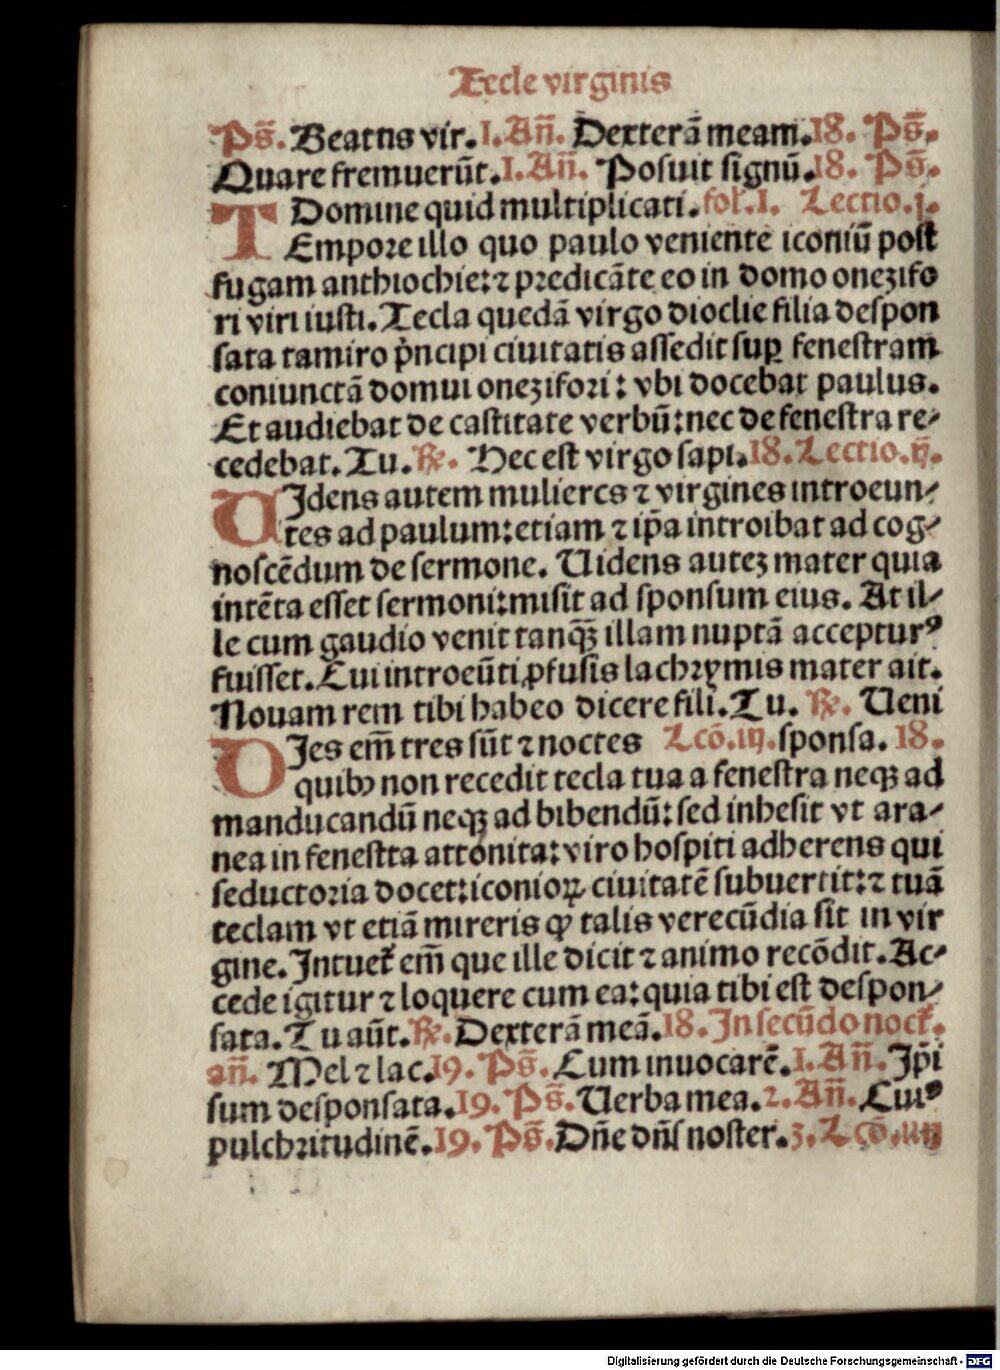 Tecle virginis
Ps̄. Beatus vir. 1. An̄. Dexterā meam. 18. Ps̄.
Quare fremuerūt. 1. An̄. Posuit signū. 18. Ps̄.
Domine quid multiplicati. fol. 1. Lectio. j.
TEmpore illo quo paulo veniente iconiū post
fugam anthiochie: ⁊ predicāte eo in domo onezifo
ri viri iusti. Tecla quedā virgo dioclie filia despon
sata tamiro p̄ncipi ciuitatis assedit suꝑ fenestram
coniunctā domui onezifori: vbi docebat paulus.
Et audiebat de castitate verbū: nec de fenestra re-
cedebat. Tu. ℞. Hec est virgo sapi. 18. Lectio. ij.
UIdens autem mulieres ⁊ virgines introeun-
tes ad paulum: etiam ⁊ ip̄a introibat ad cog-
noscēdum de sermone. Uidens autez mater quia
intēta esset sermoni: misit ad sponsum eius. At il-
le cum gaudio venit tanqꝫ̄ illam nuptā acceptur⁹
fuisset. Cui introeūti ꝓfusis lachrymis mater ait.
Nouam rem tibi habeo dicere fili. Tu. ℞. Ueni
DIes em̄ tres sūt ⁊ noctes Lcō. iij. sponsa. 18.
quibꝰ non recedit tecla tua a fenestra neqꝫ ad
manducandū neqꝫ ad bibendū: sed inhesit vt ara-
nea in fenestta attonita: viro hospiti adherens qui
seductoria docet: iconioꝝ ciuitatē subuertit: ⁊ tuā
teclam vt etiā mireris ꝙ talis verecūdia sit in vir
gine. Intuet᷑ em̄ que ille dicit ⁊ animo recōdit. Ac-
cede igitur ⁊ loquere cum ea: quia tibi est despon-
sata. Tu aūt. ℞. Dexterā meā. 18. In secūdo noct᷑.
an̄. Mel ⁊ lac. 19. Ps̄. Cum inuocarē. 1. An̄. Ip̄i
sum desponsata. 19. Ps̄. Uerba mea. 2. An̄. Cui⁹
pulchritudinē. 19. Ps̄. Dn̄e dn̄s noster. 3. Lcō. iiij
Digitalisierung gefördert durch die Deutsche Forschungsgemeinschaft - DFG